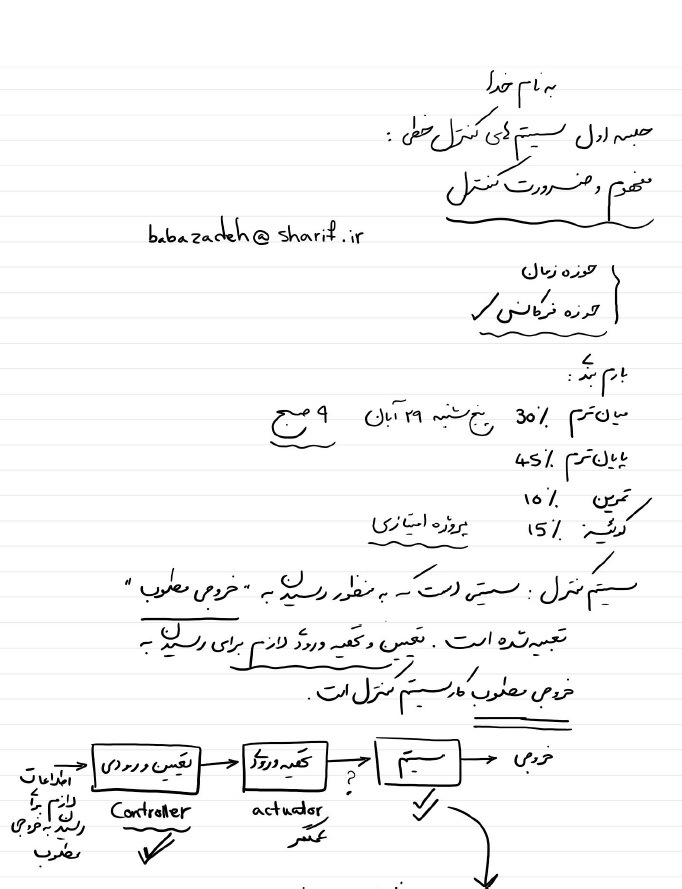 به نام خدا
جلسه اول سیستم های کنترل خطی :
مفهوم و ضرورت کنترل
babazadeh@sharif.ir
حوزه زمان
حوزه فرکانس ✓
بارم بندی :
میان ترم 30% پنج شنبه ۲۹ آبان ۹ صبح
پایان ترم 45%
تمرین 10%
کوئیز 15% پروژه امتیازی
سیستم کنترل : سیستمی است که به منظور رسیدن به "خروجی مطلوب"
تعبیه شده است . تعیین و تغذیه ورودی لازم برای رسیدن به
خروجی مطلوب کار سیستم کنترل است .
تعیین ورودی
تغذیه ورودی
?
سیستم
خروجی
اطلاعات
لازم برای
رسیدن به خروجی
مطلوب
Controller
actuator
عملگر